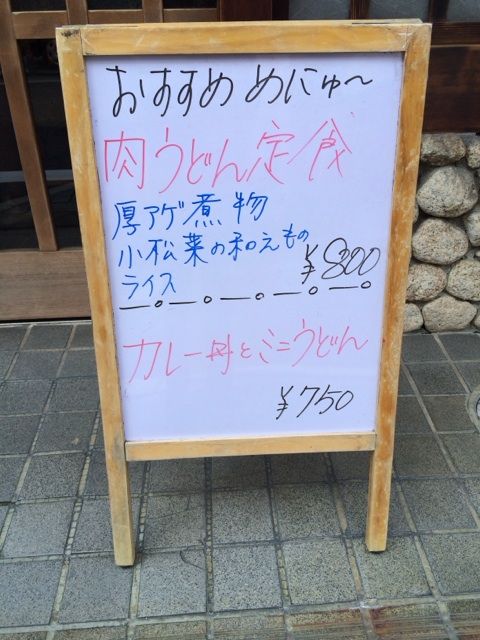 おすすめ めにゅ〜
肉うどん定食
厚アゲ煮物
小松菜の和えもの
ライス
¥800
カレー丼とミニうどん
¥750